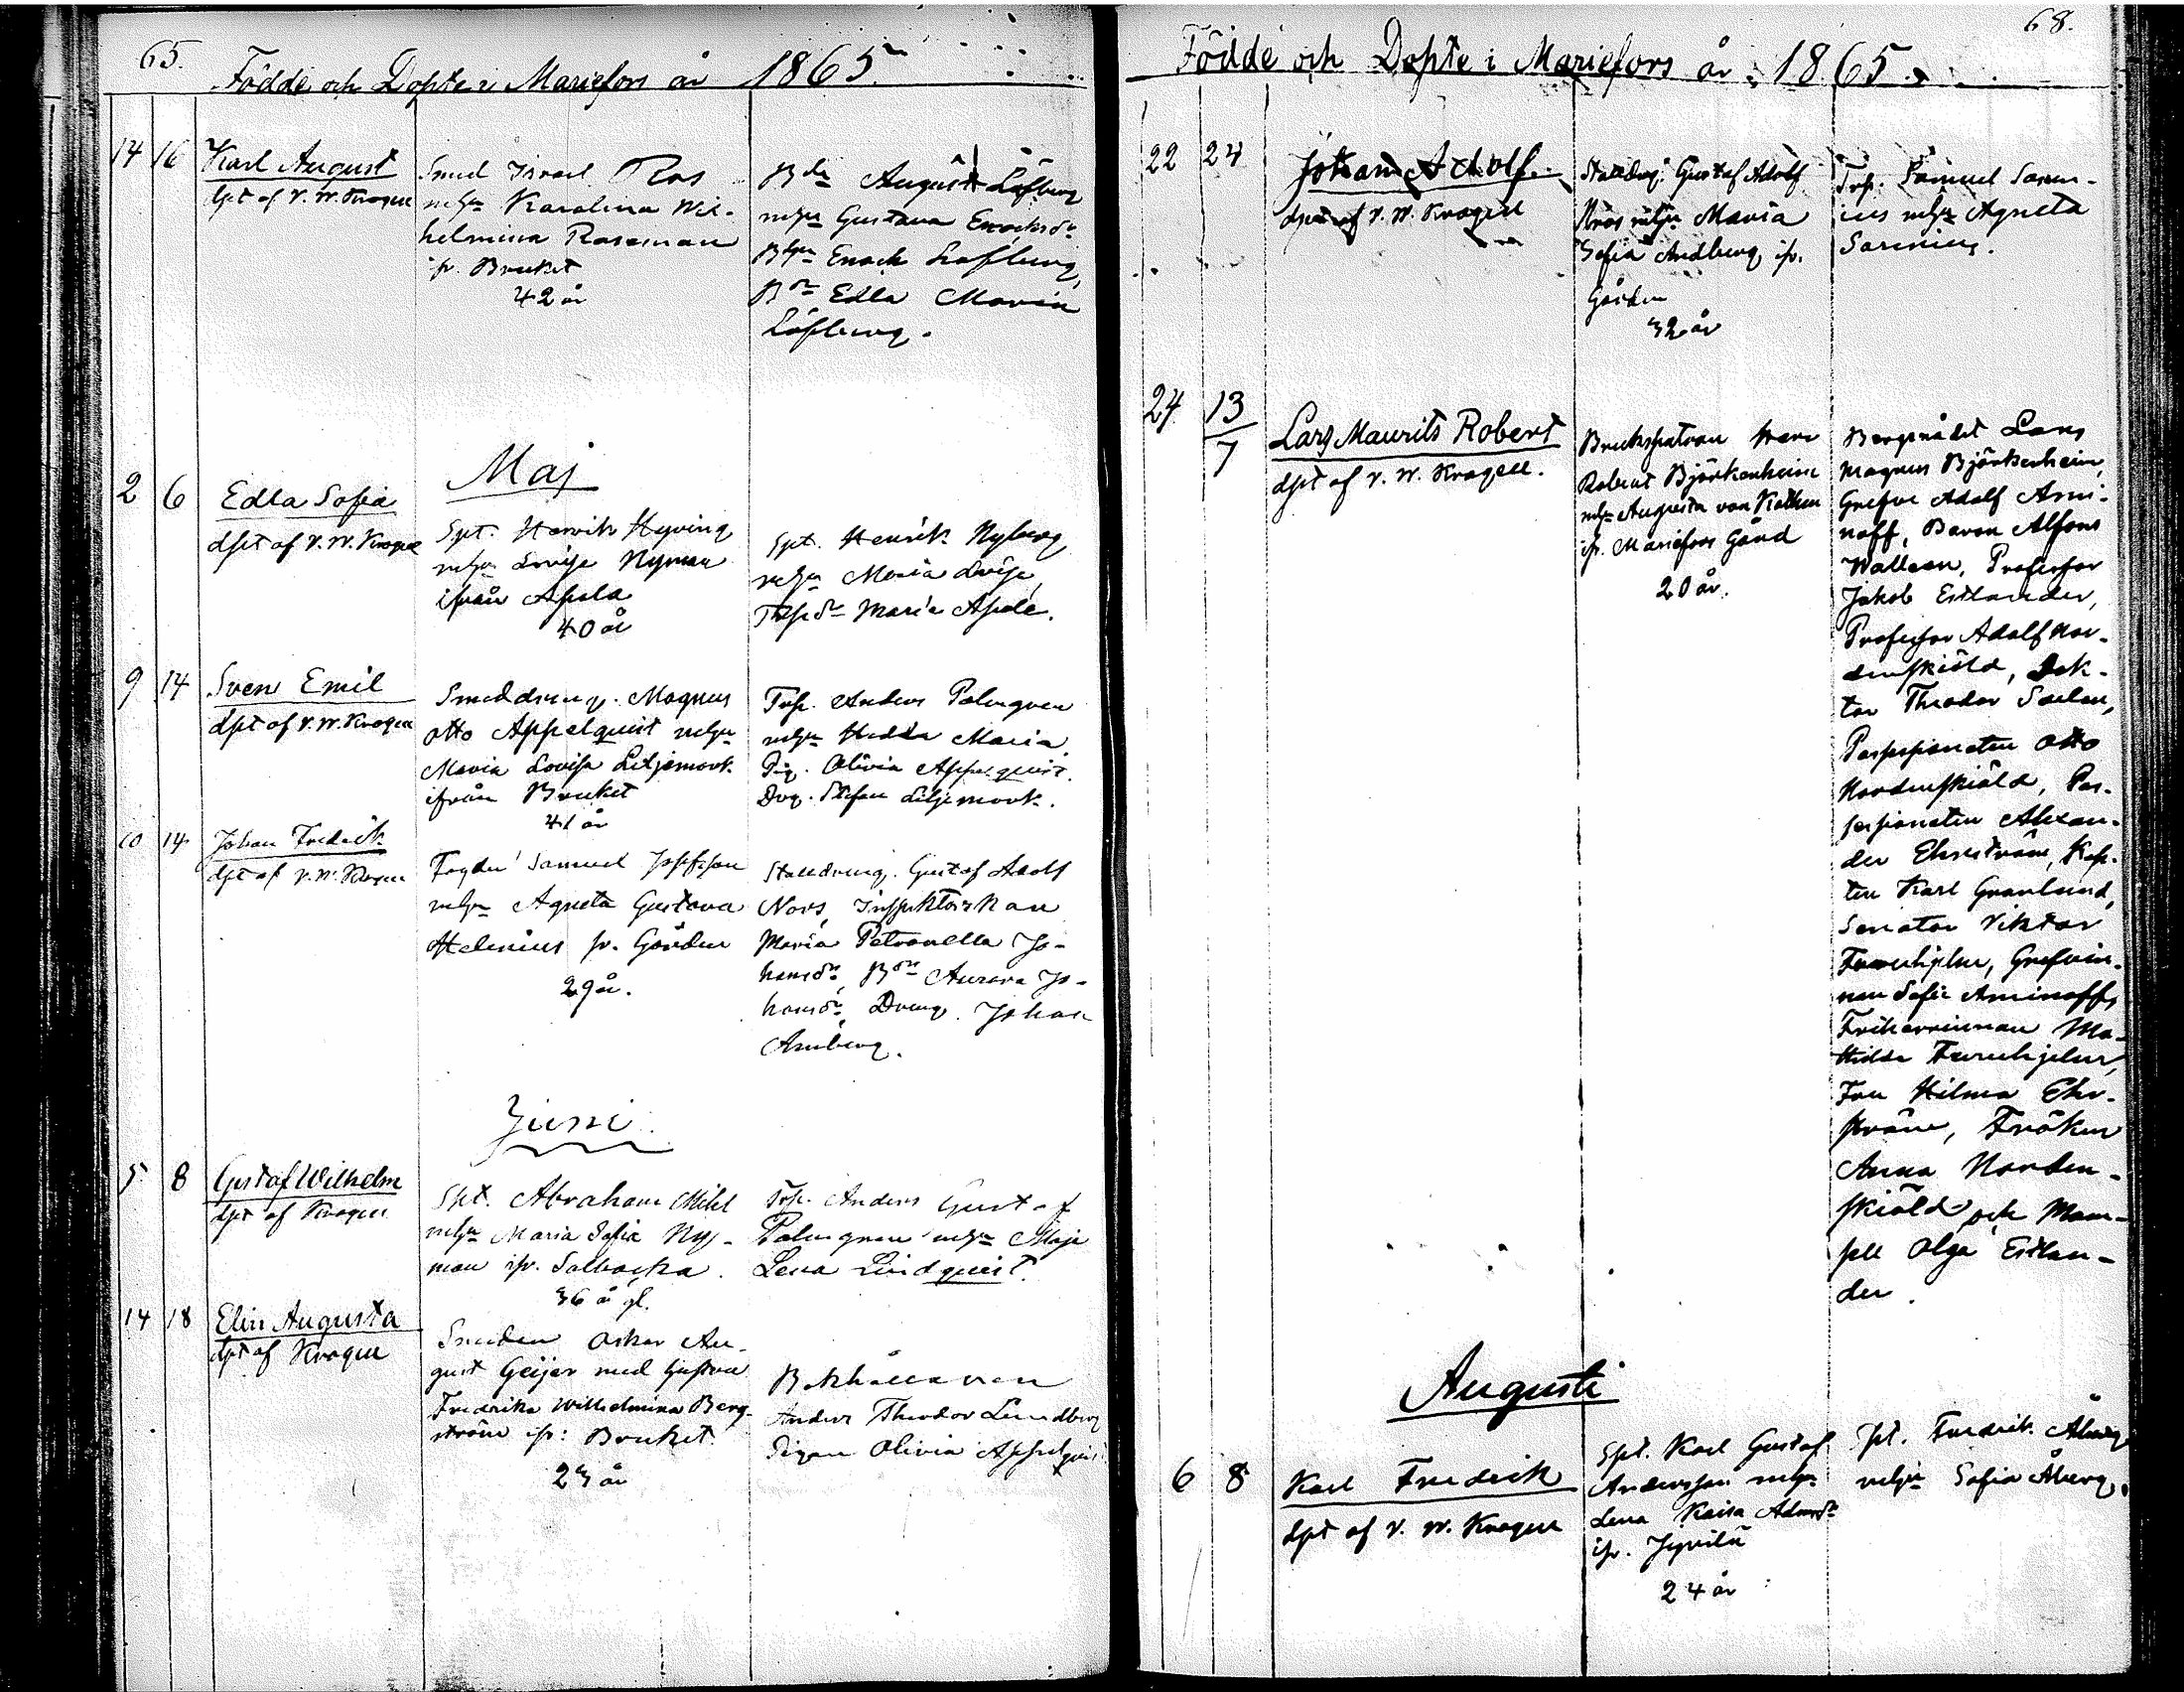 65.
Födde och Döpte i Mariefors år 1865.
14 16 Karl August
dpt af V. W. Krogell
Smed Israel Ros
m hu Karolina Wil-
helmina Roseman
ifr. Bruket
42 år
August Löfberg
m hu Gustava Enochsdr
Enoch Löfberg,
Bdr Edla Maria
Löfberg.
Maj
2 6 Edla Sofia
dpt af V. W. Krogell
Spt. Henrik
m hu Lovisa Nyman
ifrån
40 år
Spt. Henrik Nyberg
m hu Maria Lovisa,
Maria
9 14 Sven Emil
dpt af V. W. Krogell
Smeddreng. Magnus
Otto Appelquist m hu
Maria Lovisa Liljemark
ifrån Bruket
41 år
Trp. Anders Palmgren
m hu Hedda Maria,
Pig. Olivia Appelquist.
Drg. Stefan Liljemark.
10 14 Johan Fredrik
dpt af V. W. Krogell
Fogden Samuel Josefsson
m hu Agneta Gustava
Helenius fr. Gården
29 år.
Stalldreng. Gustaf Adolf
Nors, Inspektorskan
Maria Petronella Jo-
hansdr, Bdr Aurora Jo-
hansdr, Dreng. Johan
Juni
5 8 Gustaf Wilhelm
dpt af Krogell
Spt. Abraham
m hu Maria Sofia Ny-
man ifr. Salbacka.
36 år gl.
Trp. Anders Gustaf
Palmgren m hu Maja
Lena Lindquist.
14 18 Elin Augusta
dpt af Krogell
Smeden Oskar Au-
gust Geijer med hustru
Fredrika Wilhelmina Berg-
ström ifr: Bruket.
23 år
Bokhållaren
Anders Theodor Lundberg
Pigan Olivia Appelquist
68.
Födde och Döpte i Mariefors år 1865.
22 24 Johan Adolf
dpt af V. W. Krogell
Stalldrg. Gustaf Adolf
Nors m hu Maria
Sofia Andberg ifr.
Gården
32 år
Trp. Samuel Saren-
ius m hu Agneta
Sarenius.
24 13/7 Lars Maurits Robert
dpt af V. W. Krogell.
Brukspatron Herr
Robert Björkenheim
m hu Augusta von
ifr. Mariefors Gård
20 år.
Bergsrådet Lars
Magnus Björkenheim,
Grefve Adolf Ami-
noff, Baron Alfons
Walleen, Professor
Jakob Estlander,
Professor Adolf Nor-
denskiöld, Dok-
tor Theodor Saelan,
Possessionaten Otto
Nordenskiöld, Pos-
sessionaten Alexan-
der Ehrström, Kap-
ten Karl Granlund,
Senator Viktor
Furuhjelm, Grefvin-
nan Sofie Aminoff,
Friherrinnan Ma-
thilda Furuhjelm,
Fru Hilma Ehr-
ström, Fröken
Anna Norden-
skiöld och Mam-
sell Olga Estlan-
der.
Augusti
6 8 Karl Fredrik
dpt af V. W. Krogell
Spt. Karl Gustaf
Andersson m hu
Lena Kaisa Adamsdr
ifr. Jyvilä
24 år
Spt. Fredrik Åberg
m hu Sofia Åberg.